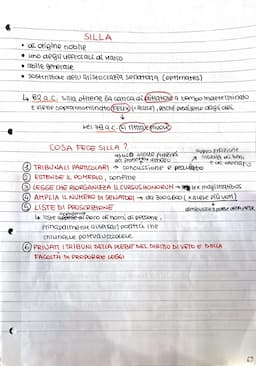 SILLA
• di origine nobile
• uno degli ufficiali di Mario
• abile generale
• sostenitore dell'aristocrazia senatoria (optimates)
↳ 82 a.C. Silla ottiene la carica di dittatore a tempo indeterminato
e viene soprannominato FELIX (= felice), perché prediletto dagli dei
↓
nel 79 a.C. si ritira e muore
COSA FECE SILLA?
① TRIBUNALI PARTICOLARI → CONCUSSIONE E PECULATO
② ESTENDE IL POMERIO, confine
③ LEGGE CHE RIORGANIZZA IL CURSUS HONORUM → magistratus
④ AMPLIA IL NUMERO DI SENATORI → da 300 a 600
⑤ LISTE DI PROSCRIZIONE
↳ liste di nomi di persone,
principalmente avversari politici che
chiunque poteva uccidere
⑥ PRIVATI I TRIBUNI DELLA PLEBE DEL DIRITTO DI VETO E DELLA
FACOLTÀ DI PROPORRE LEGGI